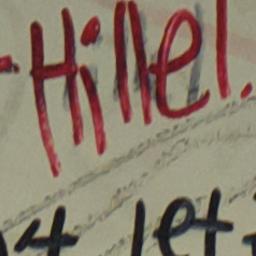 -Hillel.
let